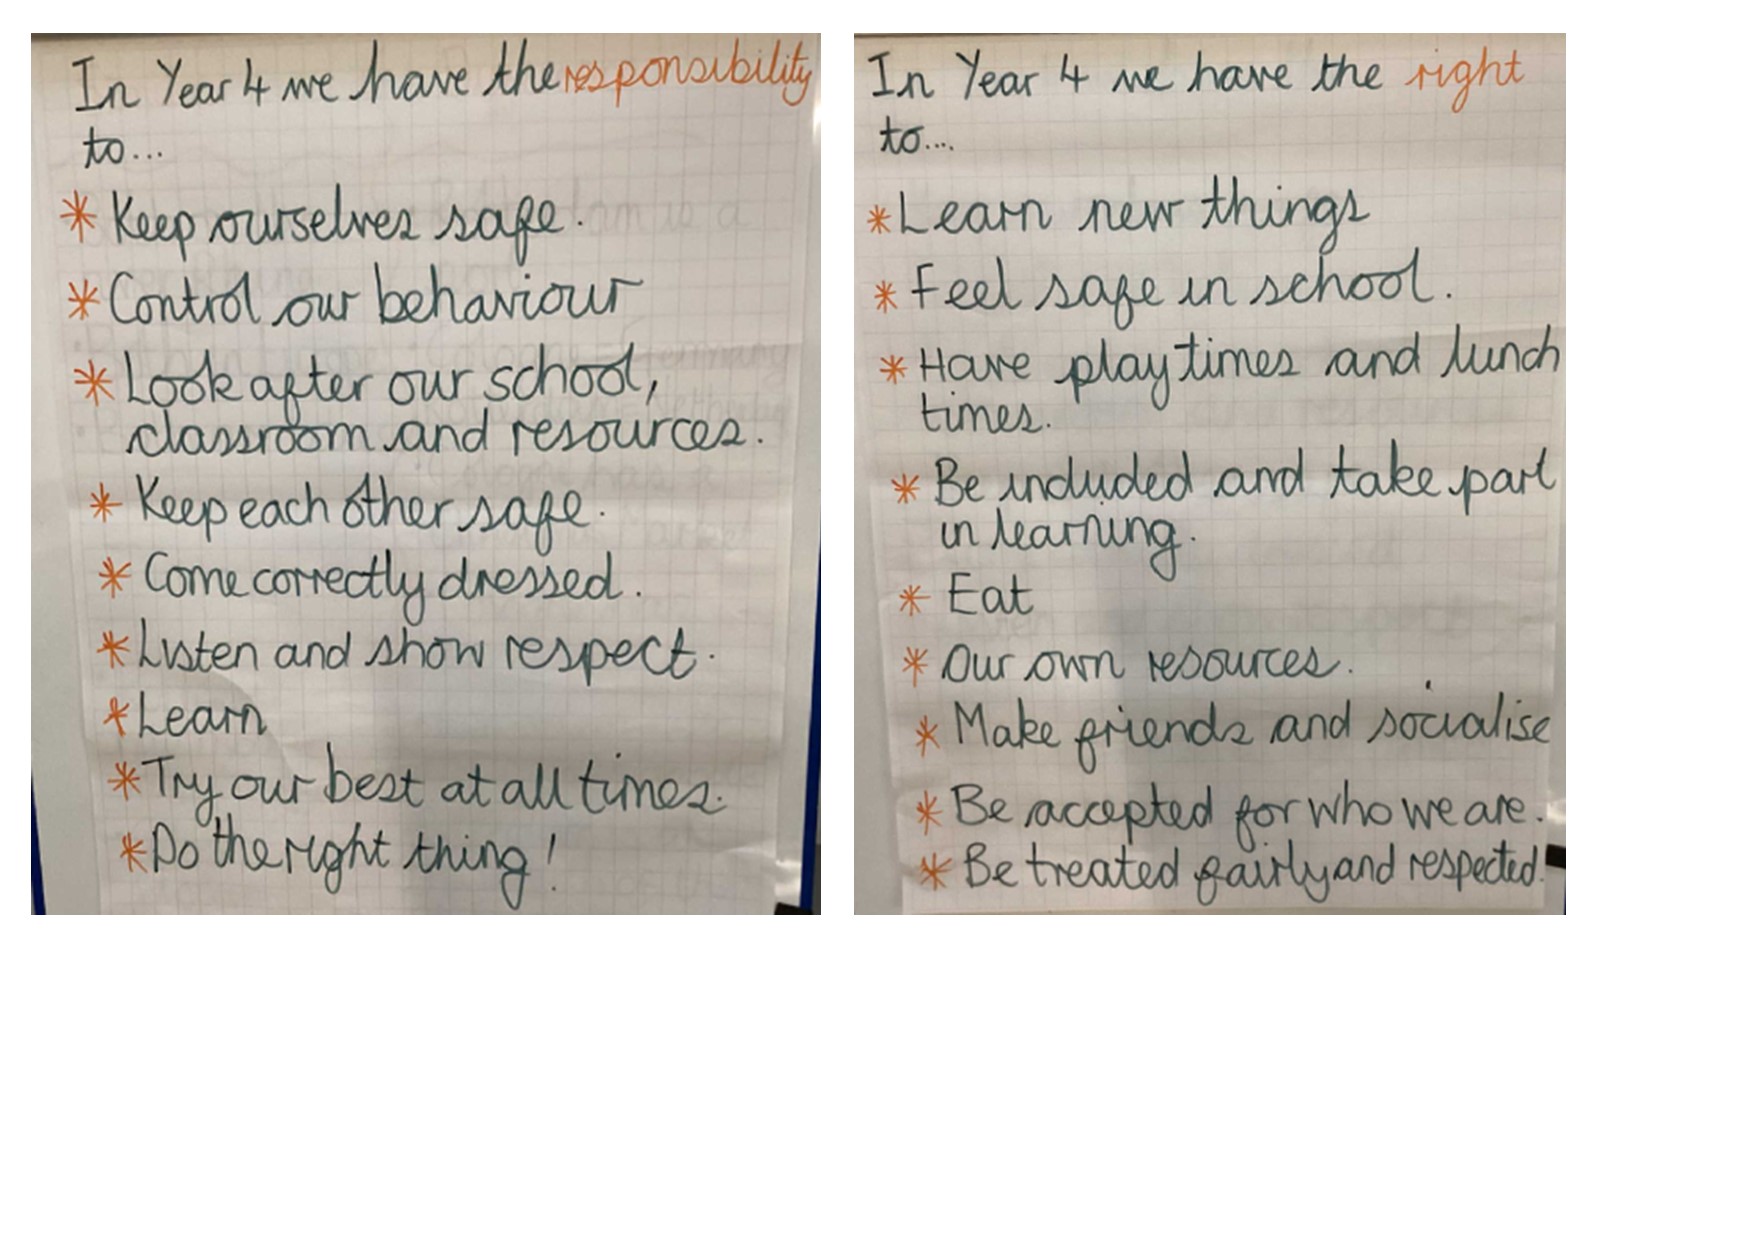 In Year 4 we have the responsibility
to...
* Keep ourselves safe.
* Control our behaviour
* Look after our school,
classroom and resources.
* Keep each other safe.
* Come correctly dressed.
* Listen and show respect.
* Learn
* Try our best at all times.
* Do the right thing!
In Year 4 we have the right
to....
* Learn new things
* Feel safe in school.
* Have playtimes and lunch
times.
* Be included and take part
in learning.
* Eat
* Our own resources.
* Make friends and socialise
* Be accepted for who we are.
* Be treated fairly and respected.